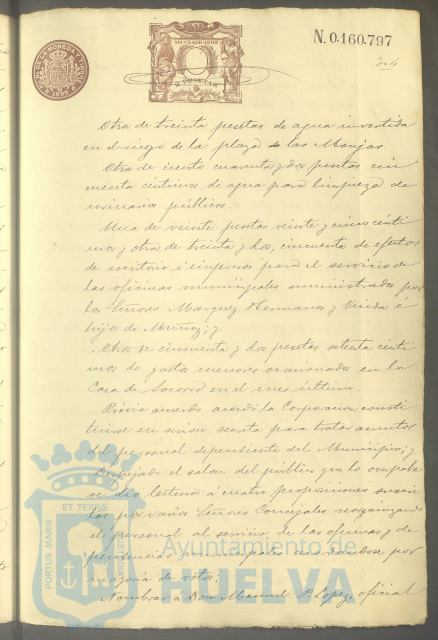 N. 0.160.797
304
Otra de treinta pesetas de agua invertida
en el riego de la plaza de las Monjas.
Otra de ciento cuarenta y dos pesetas cin
cuenta céntimos de agua para limpieza de
urinarios públicos.
Una de veinte pesetas veinte y cinco cénti
mos y otra de treinta y dos, cincuenta de efectos
de escritorio é impresos para el servicio de
las oficinas municipales suministrados por
los Señores Marquez Hermanos y Viuda é
hijos de Muñoz; y
Otra de cincuenta y dos pesetas setenta cénti
mos de gastos menores ocasionados en la
Casa de Socorro en el mes último.
Prévio acuerdo acordó la Corporacion consti
tuirse en sesion secreta para tratar asuntos
del personal dependiente del Municipio; y
Despejado el salon del público que lo ocupaba
se dió lectura á cuatro proposiciones suscri
tas por varios Señores Concejales reorganizando
el personal al servicio de las oficinas y de
por
mayoria de votos:
Nombrar á Don Manuel P. Lopez oficial
PORTUS MARIS ET TERRE CUSTODIA
Ayuntamiento de
HUELVA